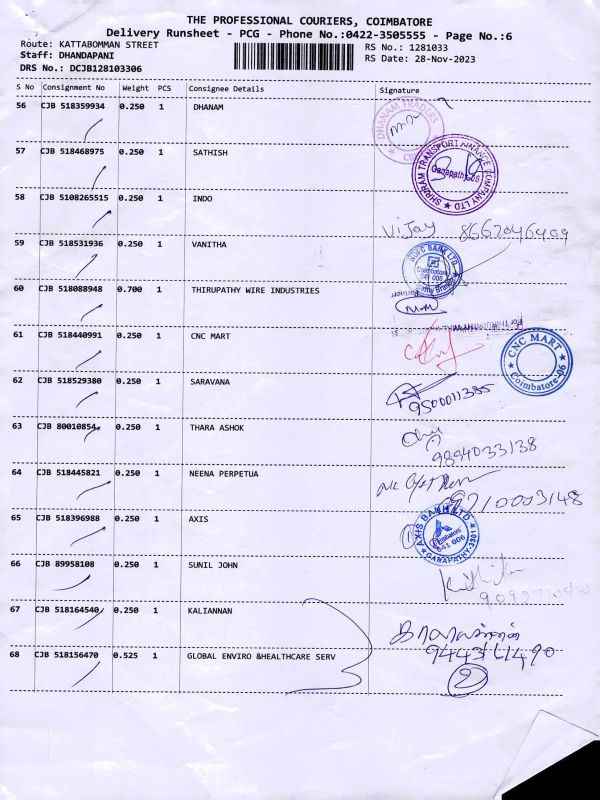 THE PROFESSIONAL COURIERS, COIMBATORE
Delivery Runsheet - PCG - Phone No.:0422-3505555 - Page No.:6
Route: KATTABOMMAN STREET
RS No.: 1281033
Staff: DHANDAPANI
RS Date: 28-Nov-2023
DRS No.: DCJB128103306
S No Consignment No Weight PCS Consignee Details Signature
56 CJB 518359934 0.250 1 DHANAM
DHANAM TRADERS
57 CJB 518468975 0.250 1 SATHISH
SHRIRAM TRANSPORT FINANCE COMPANY LTD
58 CJB 5108265515 0.250 1 INDO
Vijay 8667046409
59 CJB 518531936 0.250 1 VANITHA
HDFC BANK LTD.
Coimbatore
641 006
60 CJB 518088948 0.700 1 THIRUPATHY WIRE INDUSTRIES
61 CJB 518440991 0.250 1 CNC MART
CNC MART
Coimbatore-06
62 CJB 518529380 0.250 1 SARAVANA
9500011385
63 CJB 80010854 0.250 1 THARA ASHOK
9894033138
64 CJB 518445821 0.250 1 NEENA PERPETUA
9710003148
65 CJB 518396988 0.250 1 AXIS
AXIS BANK LTD
Coimbatore
641 006
66 CJB 89958108 0.250 1 SUNIL JOHN
67 CJB 518164540 0.250 1 KALIANNAN
68 CJB 518156470 0.525 1 GLOBAL ENVIRO &HEALTHCARE SERV
2